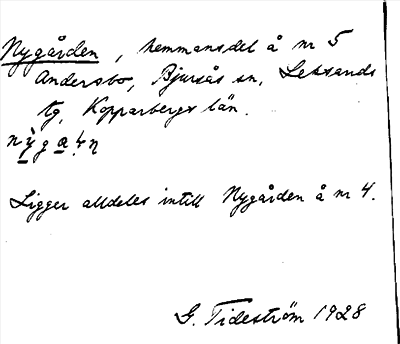 Nygården, hemmansdel å nr 5
Andersbo, Bjursås sn, Leksands
tg, Kopparbergs län.
Ligger alldeles intill Nygården å nr 4.
G. Tideström 1928